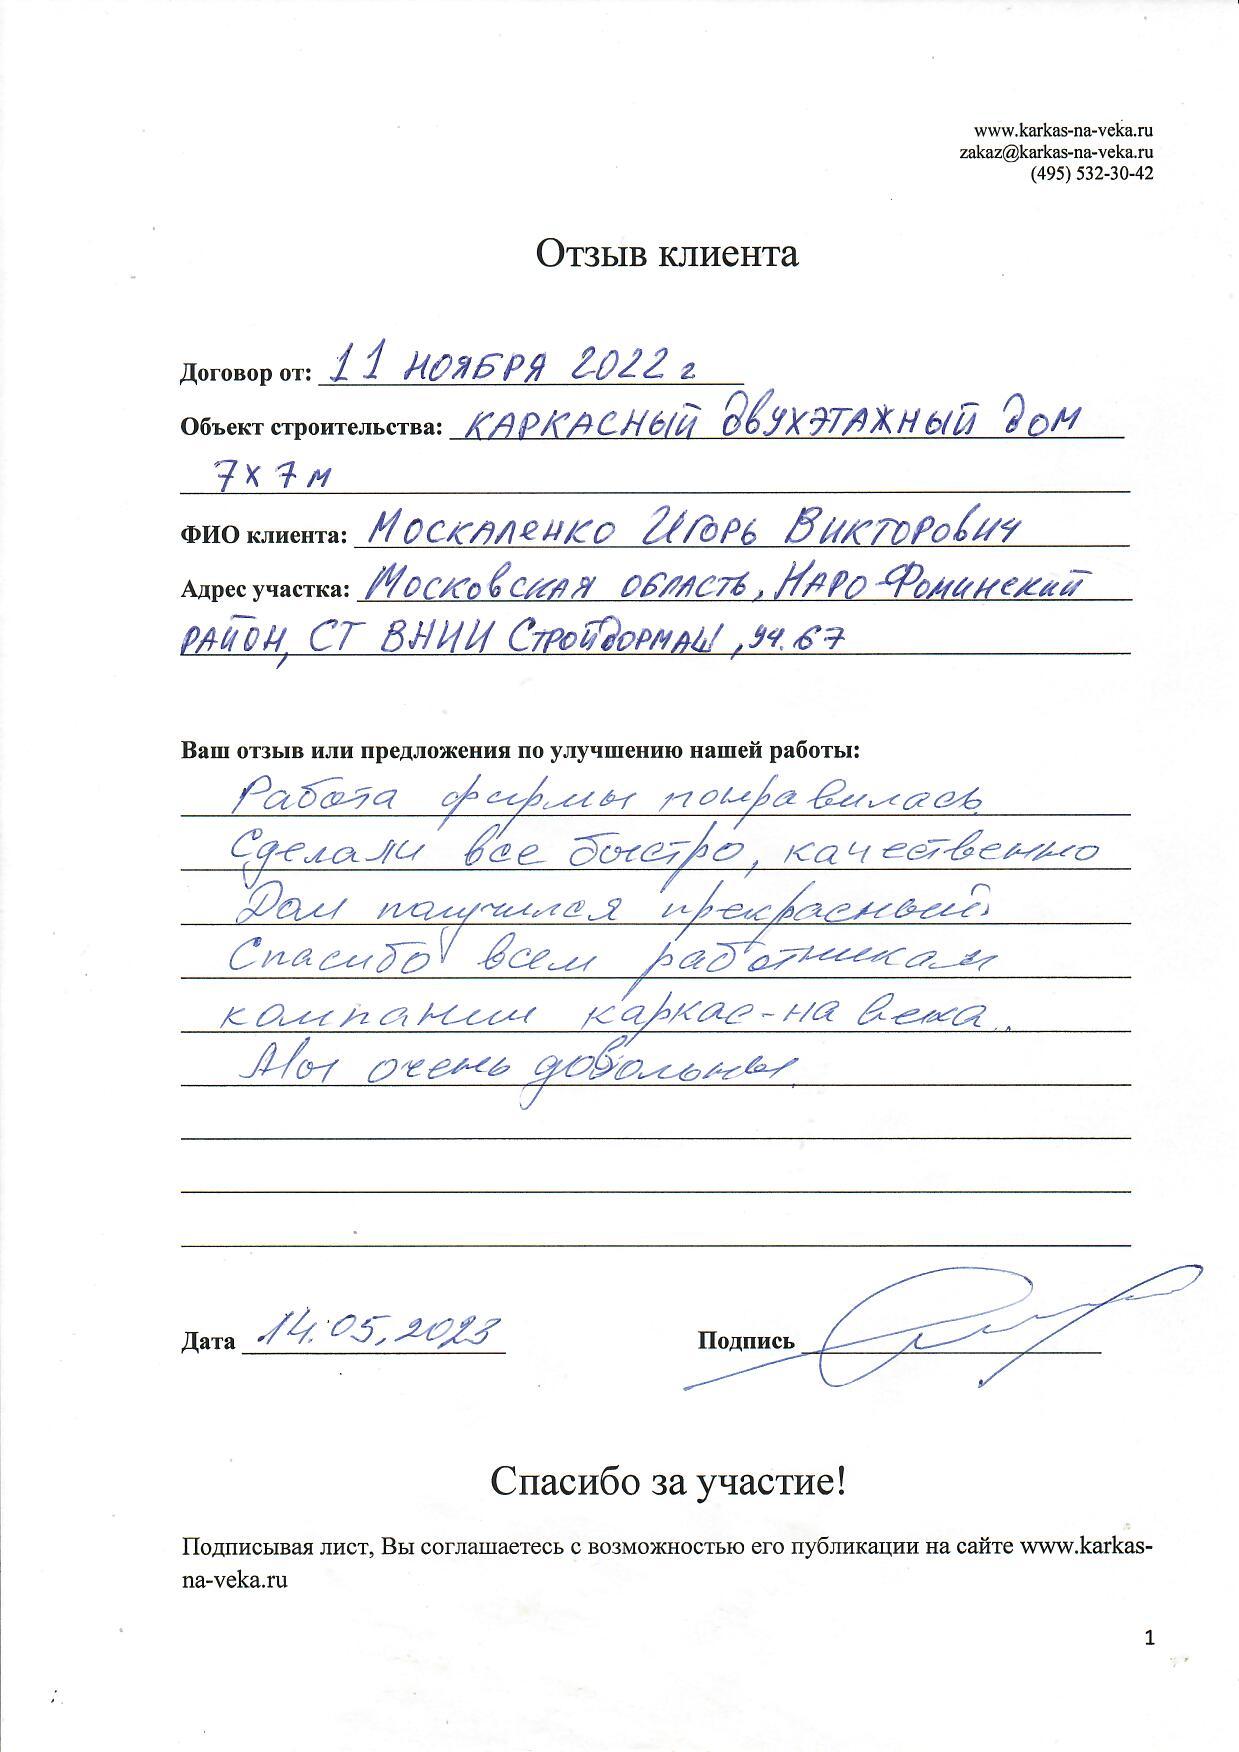 www.karkas-na-veka.ru
zakaz@karkas-na-veka.ru
(495) 532-30-42
Отзыв клиента
Договор от: 11 НОЯБРЯ 2022 г
Объект строительства: КАРКАСНЫЙ ДВУХЭТАЖНЫЙ ДОМ
7 х 7 м
ФИО клиента: МОСКАЛЕНКО ИГОРЬ ВИКТОРОВИЧ
Адрес участка: МОСКОВСКАЯ ОБЛАСТЬ, НАРО-ФОМИНСКИЙ
РАЙОН, СТ ВНИИ СТРОЙДОРМАШ, уч. 67
Ваш отзыв или предложения по улучшению нашей работы:
Работа фирмы понравилась.
Сделали все быстро, качественно
Дом получился прекрасный.
Спасибо всем работникам
компании каркас-на века.
Мы очень довольны.
Дата 14.05.2023 Подпись
Спасибо за участие!
Подписывая лист, Вы соглашаетесь с возможностью его публикации на сайте www.karkas-
na-veka.ru
1